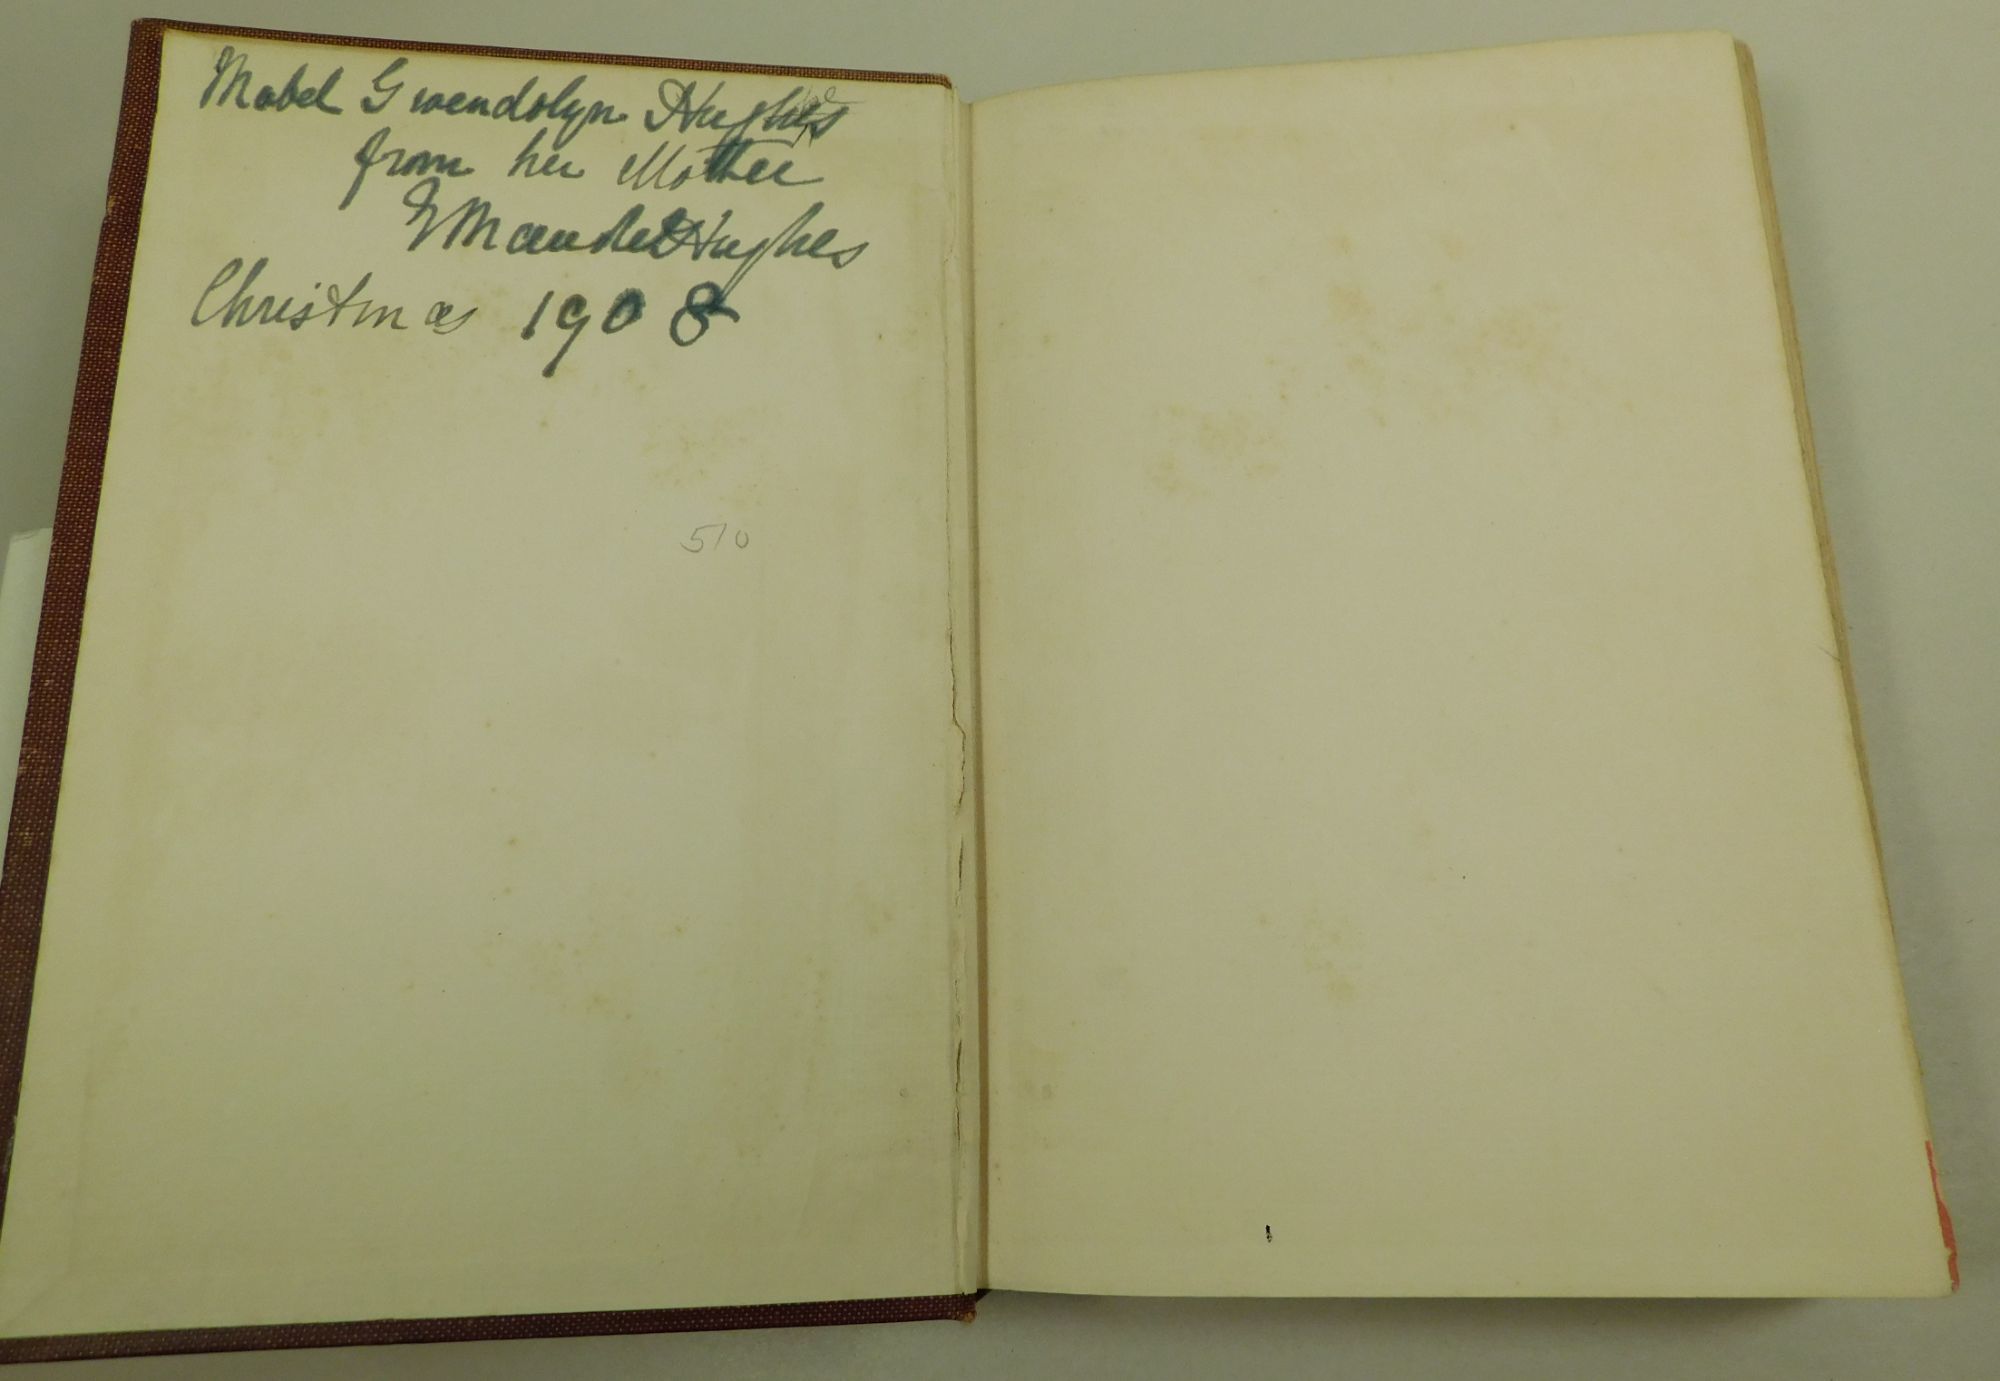 Mabel Gwendolyn Hughes
from her Mother
Maude Hughes
Christmas 1908
510